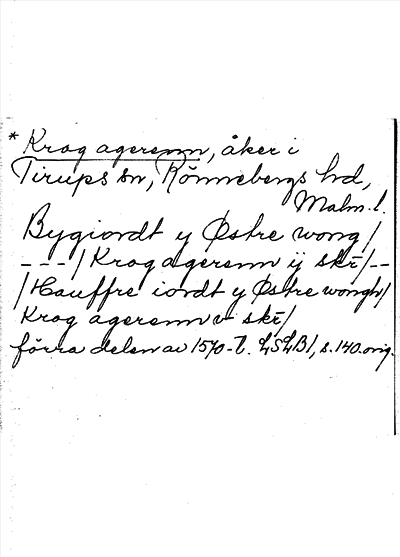 * Krog agerenn, åker i
Tirups sn, Rönnebergs hd,
Malm. l.
Bygiordt y Østre wong /
- - - / Krog agerenn ij skr̄ / - -
/ Hauffre iordt y Østre wongh /
Krog agerenn v skr̄ /
förra delen av 1570-t. LSLB 1, s. 140. orig.